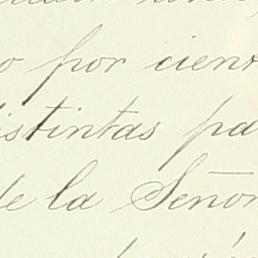 o por cien
distintas pa
de la Señor